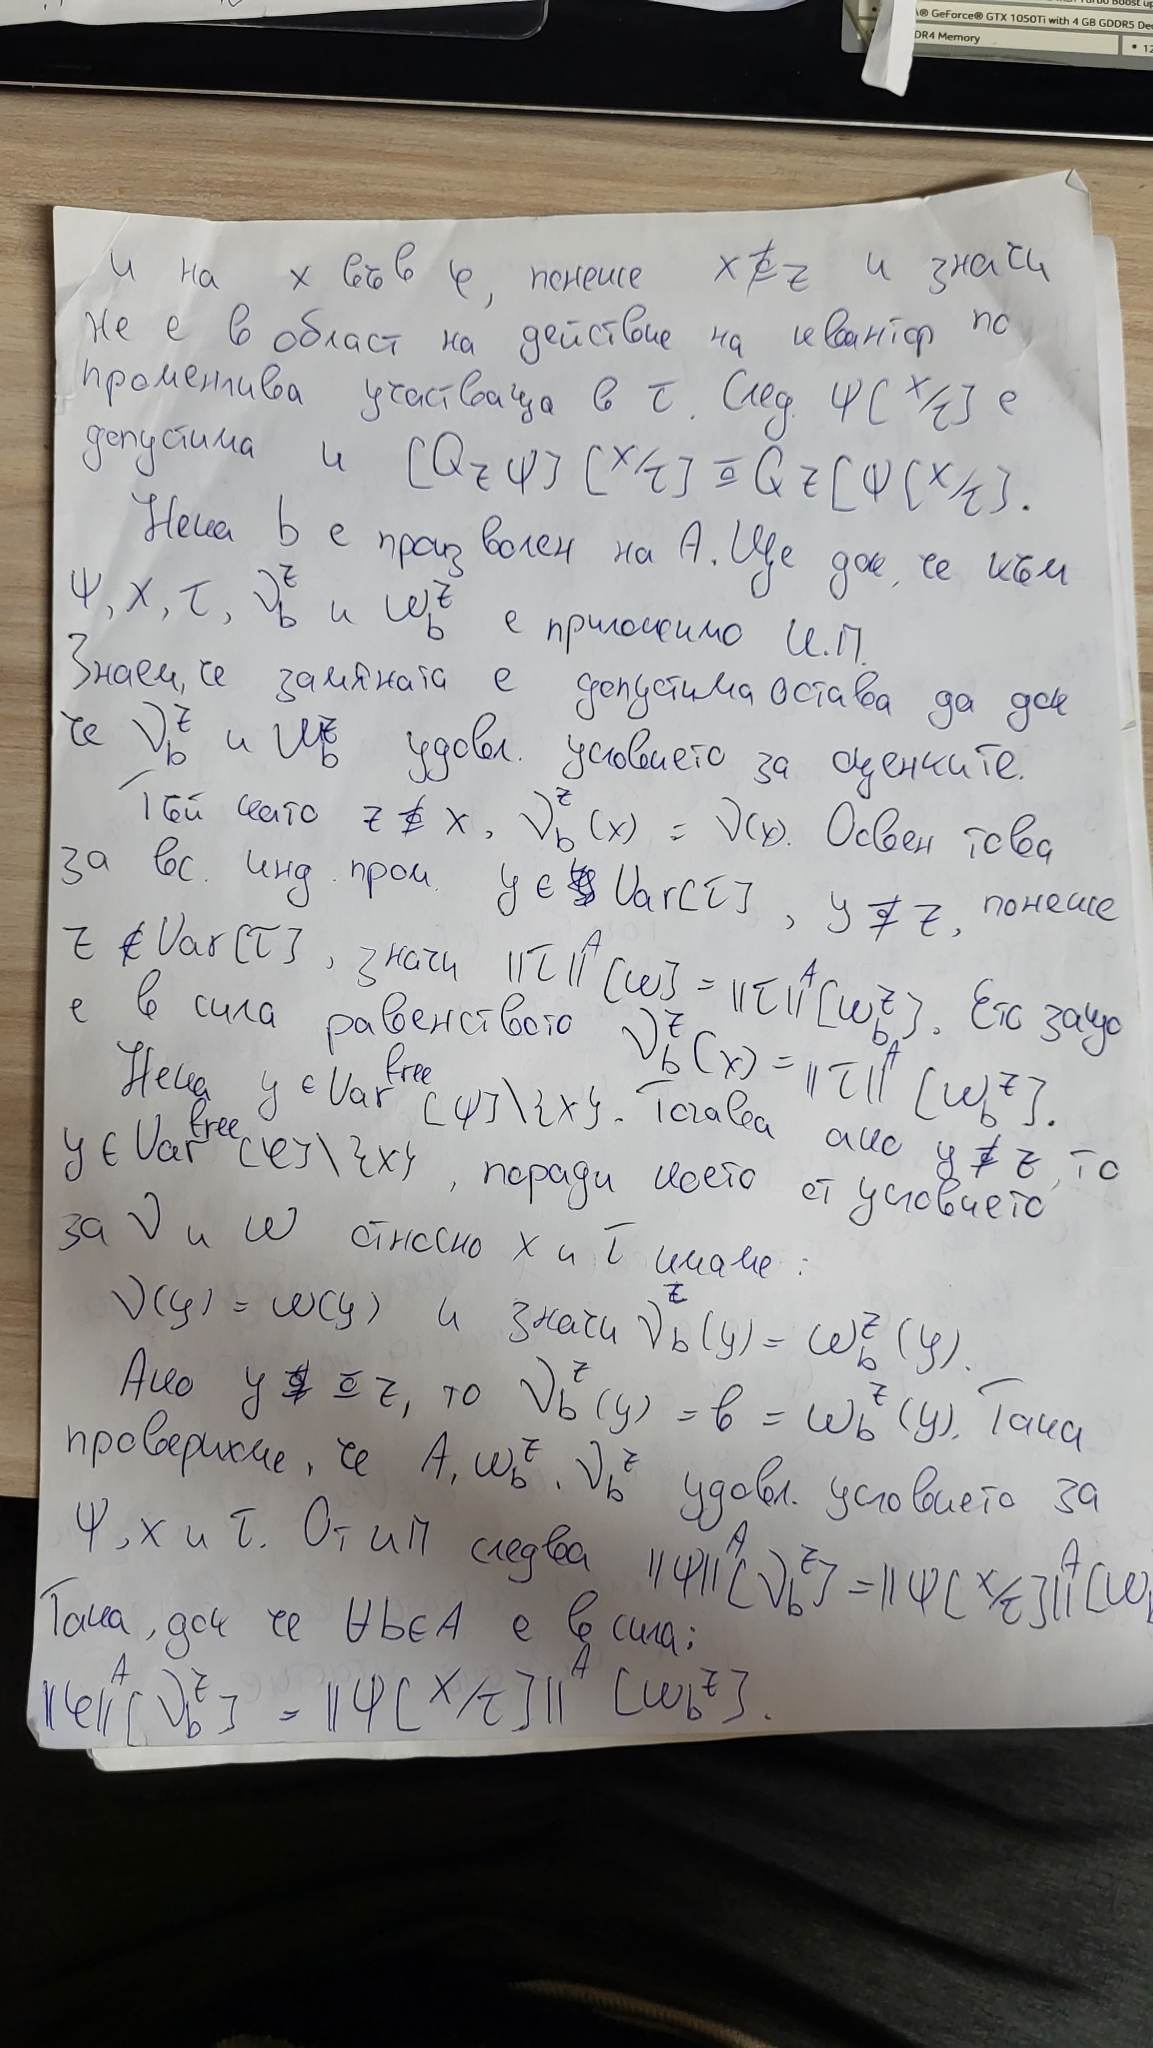 ® GeForce® GTX 1050Ti with 4 GB GDDR5 De
DR4 Memory
• 12
и на x във φ, понеже x ≢ z и значи
не е в област на действие на квантор по
променлива участваща в τ. След. ψ[x/τ] е
допустима и [Qzψ][x/τ] ≡ Qz[ψ[x/τ].
Нека b е произволен на A. Ще док, че към
ψ, x, τ, ν_b^z и ω_b^z е приложимо И.П.
Знаем, че замяната е допустима остава да док
че ν_b^z и ω_b^z удовл. условието за оценките.
Тъй като z ≢ x, ν_b^z(x) = ν(x). Освен това
за вс. инд. пром. y ∈ Var[τ], y ≢ z, понеже
z ∉ Var[τ], значи ||τ||^A[ω] = ||τ||^A[ω_b^z]. Ето защо
е в сила равенството ν_b^z(x) = ||τ||^A[ω_b^z].
Нека y ∈ Var^free[ψ]\{x}. Тогава ако y ≢ z, то
y ∈ Var^free[φ]\{x}, поради което от условието
за ν и ω относно x и τ имаме:
ν(y) = ω(y) и значи ν_b^z(y) = ω_b^z(y).
Ако y ≡ z, то ν_b^z(y) = b = ω_b^z(y). Така
проверихме, че A, ω_b^z, ν_b^z удовл. условието за
ψ, x и τ. От ИП следва ||ψ||^A[ν_b^z] = ||ψ[x/τ]||^A[ω_b
Така, док че ∀b∈A е в сила:
||φ||^A[ν_b^z] = ||ψ[x/τ]||^A[ω_b^z].